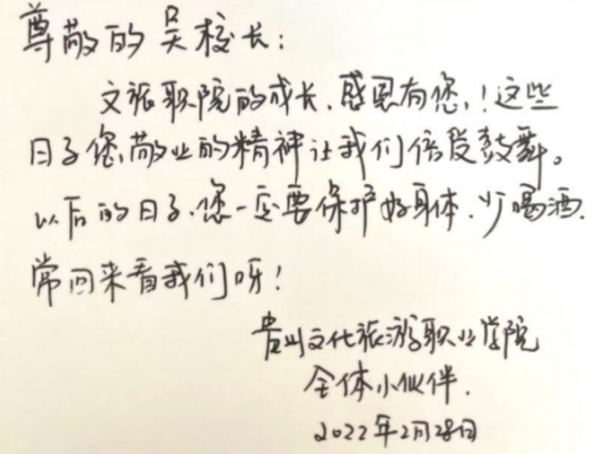 尊敬的吴校长：
文旅职院的成长，感恩有您，！这些
日子您敬业的精神让我们倍受鼓舞。
以后的日子，您一定要保护好身体，少喝酒，
常回来看我们呀！
贵州文化旅游职业学院
全体小伙伴．
2022年2月28日